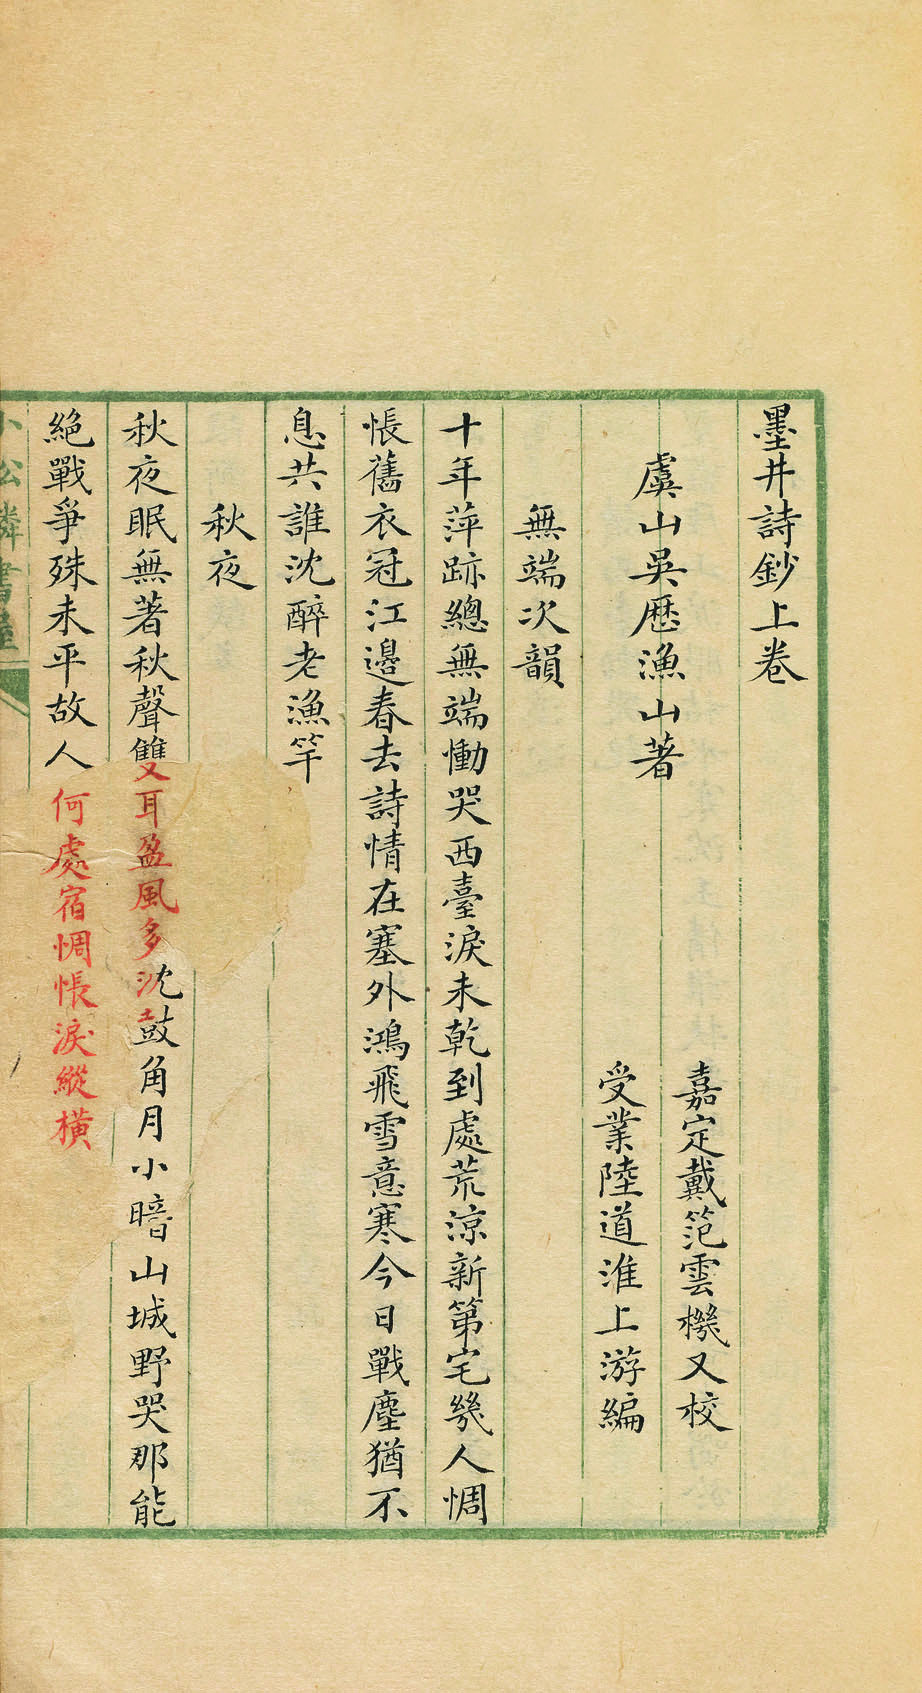 墨井詩鈔上卷
虞山吳歷漁山著
嘉定戴笵雲機又校
受業陸道淮上游編
無端次韻
十年萍跡總無端慟哭西臺淚未乾到處荒凉新第宅幾人惆
悵舊衣冠江邊春去詩情在塞外鴻飛雪意寒今日戰塵猶不
息共誰沈醉老漁竿
秋夜
秋夜眠無著秋聲雙耳盈風多沈鼓角月小暗山城野哭那能
絕戰爭殊未平故人何處宿惆悵淚縱橫
小松鄰書屋